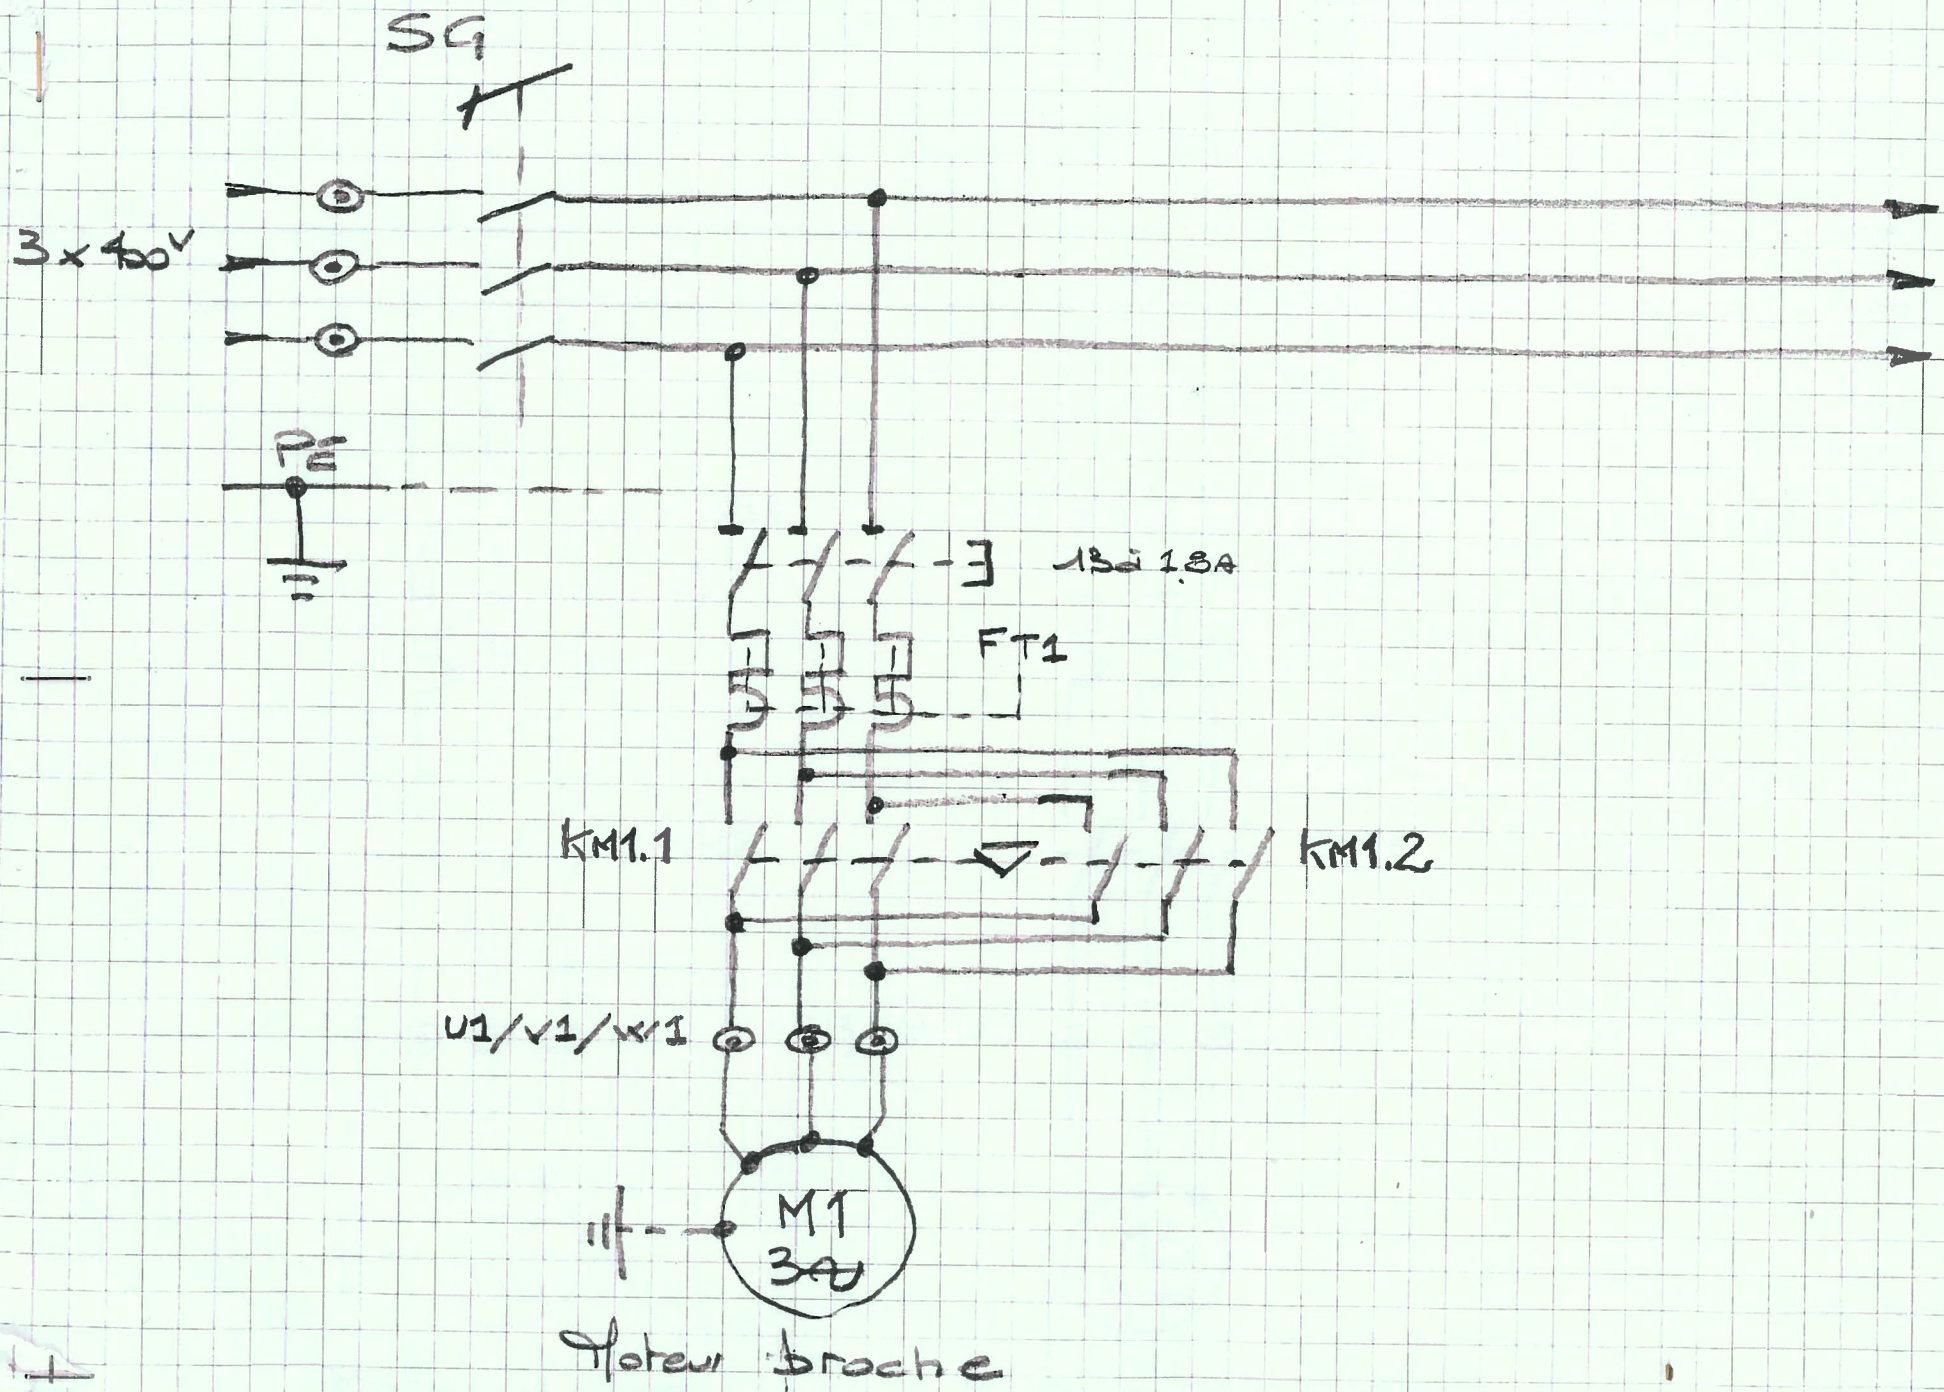 SG
3 x 400V
PE
13 à 18A
FT1
KM1.1
KM1.2
U1/V1/W1
M1
3~
Moteur broche